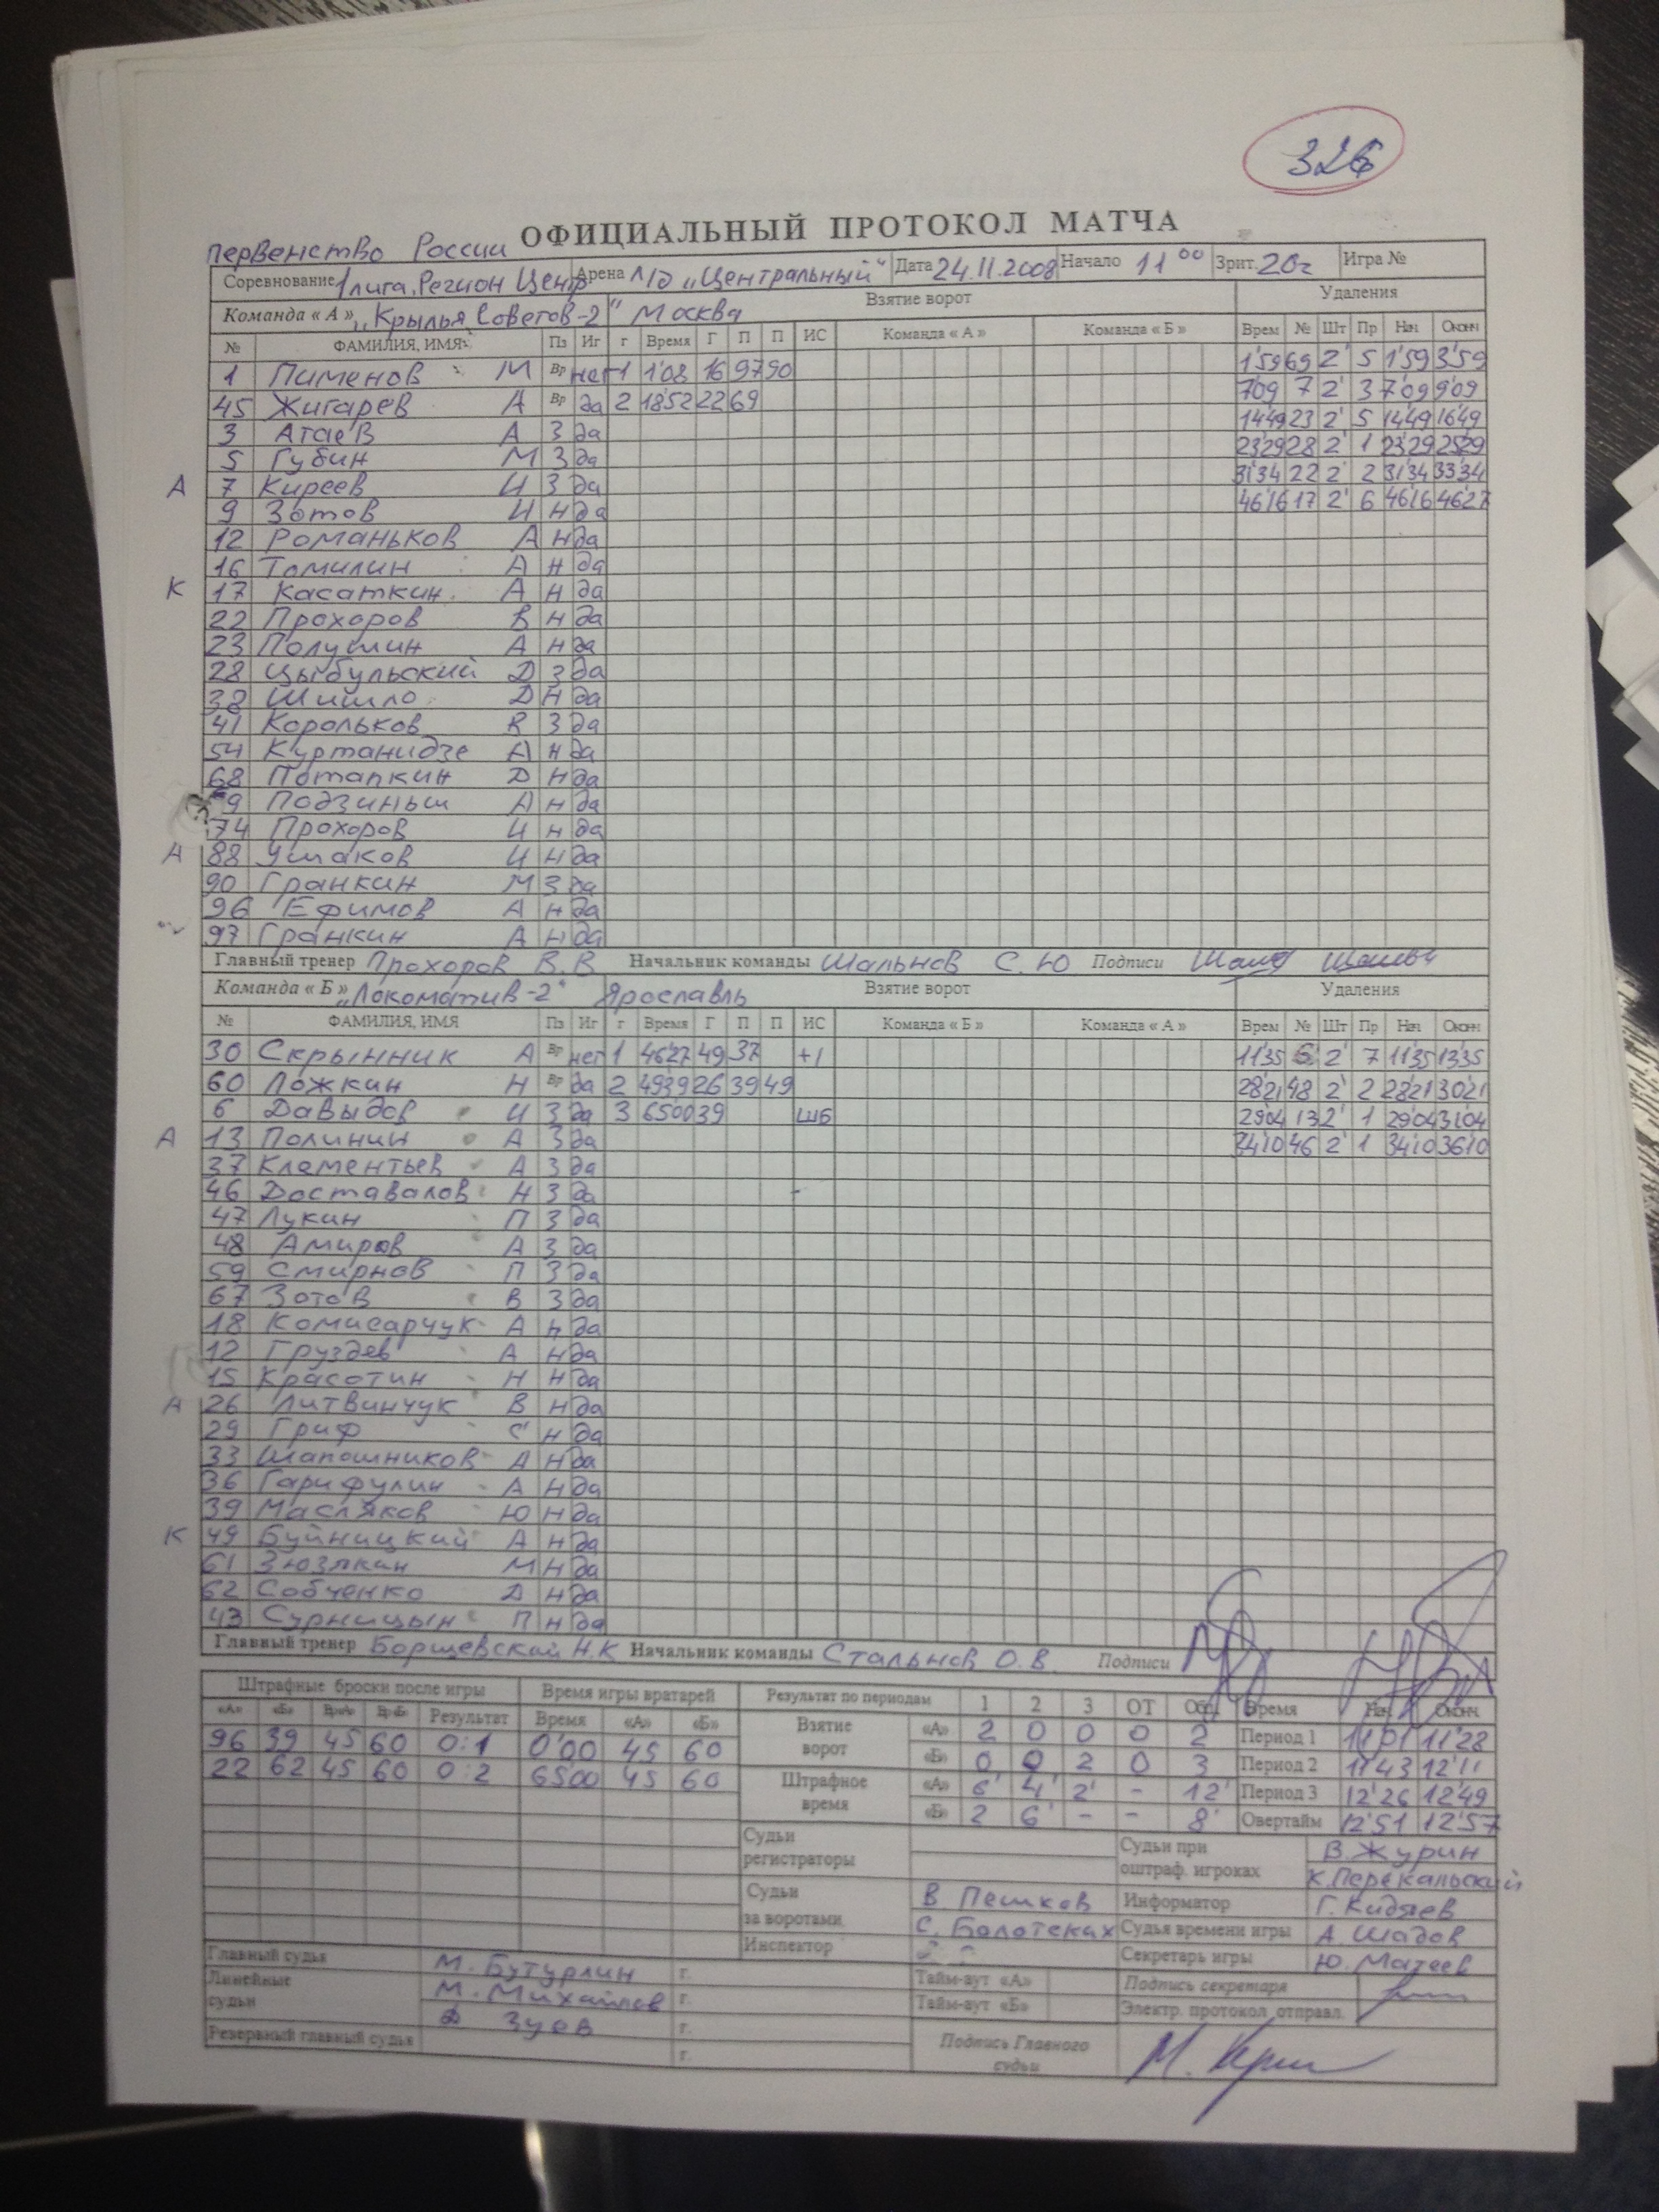 326
ОФИЦИАЛЬНЫЙ ПРОТОКОЛ МАТЧА
первенство России
Соревнование 1 лига, Регион Центр Арена л/д „Центральный“ Дата 24.11.2008 Начало 11 00 Зрит. 20г Игра №
Команда «А» „Крылья Советов-2“ Москва Взятие ворот Удаления
№ ФАМИЛИЯ, ИМЯ Пз Иг г Время Г П П ИС Команда «А» Команда «Б» Врем № Шт Пр Нач Оконч
1 Пименов М Вр нет 1 1'08 16 97 90 1'59 69 2' 5 1'59 3'59
45 Жигарев А Вр да 2 18'52 22 69 7'09 7 2' 3 7'09 9'09
3 Атаев А З да 14'49 23 2' 5 14'49 16'49
5 Губин М З да 23'29 28 2' 1 23'29 25'29
А 7 Киреев И З да 31'34 22 2' 2 31'34 33'34
9 Зотов И Н да 46'16 17 2' 6 46'16 46'27
12 Романьков А Н да
16 Томилин А Н да
К 17 Касаткин А Н да
22 Прохоров В Н да
23 Полушин А Н да
28 Цыбульский Д З да
38 Шишло Д Н да
41 Корольков В З да
54 Куртанидзе А Н да
68 Потапкин Д Н да
69 Подзиньш А Н да
74 Прохоров И Н да
А 88 Ушаков И Н да
90 Гранкин М З да
96 Ефимов А Н да
97 Гранкин А Н да
Главный тренер Прохоров В.В Начальник команды Шальнов С.Ю Подписи
Команда «Б» „Локомотив-2“ Ярославль Взятие ворот Удаления
№ ФАМИЛИЯ, ИМЯ Пз Иг г Время Г П П ИС Команда «Б» Команда «А» Врем № Шт Пр Нач Оконч
30 Скрынник А Вр нет 1 46'27 49 37 +1 11'35 6 2' 7 11'35 13'35
60 Ложкин Н Вр да 2 49'39 26 39 49 28'21 48 2' 2 28'21 30'21
6 Давыдов И З да 3 65'00 39 ШБ 29'04 13 2' 1 29'04 31'04
А 13 Полинин А З да 34'10 46 2' 1 34'10 36'10
37 Клементьев А З да
46 Доставалов Н З да
47 Лукин П З да
48 Амиров А З да
59 Смирнов П З да
67 Зотов В З да
18 Комисарчук А Н да
12 Груздев А Н да
15 Красотин Н Н да
А 26 Литвинчук В Н да
29 Гриф С Н да
33 Шапошников А Н да
36 Гарифулин А Н да
39 Масляков Ю Н да
К 49 Буйницкий А Н да
61 Зюзякин М Н да
62 Собченко Д Н да
43 Сурницын П Н да
Главный тренер Борщевский Н.К Начальник команды Стальнов О.В. Подписи
Штрафные броски после игры Время игры вратарей Результат по периодам 1 2 3 ОТ Общ. Время Нач. Оконч.
«А» «Б» Вр«А» Вр«Б» Результат Время «А» «Б» Взятие ворот «А» 2 0 0 0 2 Период 1 11'01 11'28
96 39 45 60 0:1 0'00 45 60 «Б» 0 0 2 0 3 Период 2 11'43 12'11
22 62 45 60 0:2 65'00 45 60 Штрафное время «А» 6' 4' 2' - 12' Период 3 12'26 12'49
«Б» 2 6' - - 8' Овертайм 12'51 12'57
Судьи регистраторы Судьи при оштраф. игроках В. Журин
К. Перекальский
Судьи за воротами В. Пешков Информатор Г. Кидяев
С. Болотеках Судья времени игры А. Шадов
Инспектор Секретарь игры Ю. Матеев
Главный судья М. Бутурлин г. Тайм-аут «А» Подпись секретаря
Линейные судьи М. Михайлов г. Тайм-аут «Б» Электр. протокол отправл.
Д Зуев г.
Резервный главный судья г. Подпись Главного судьи